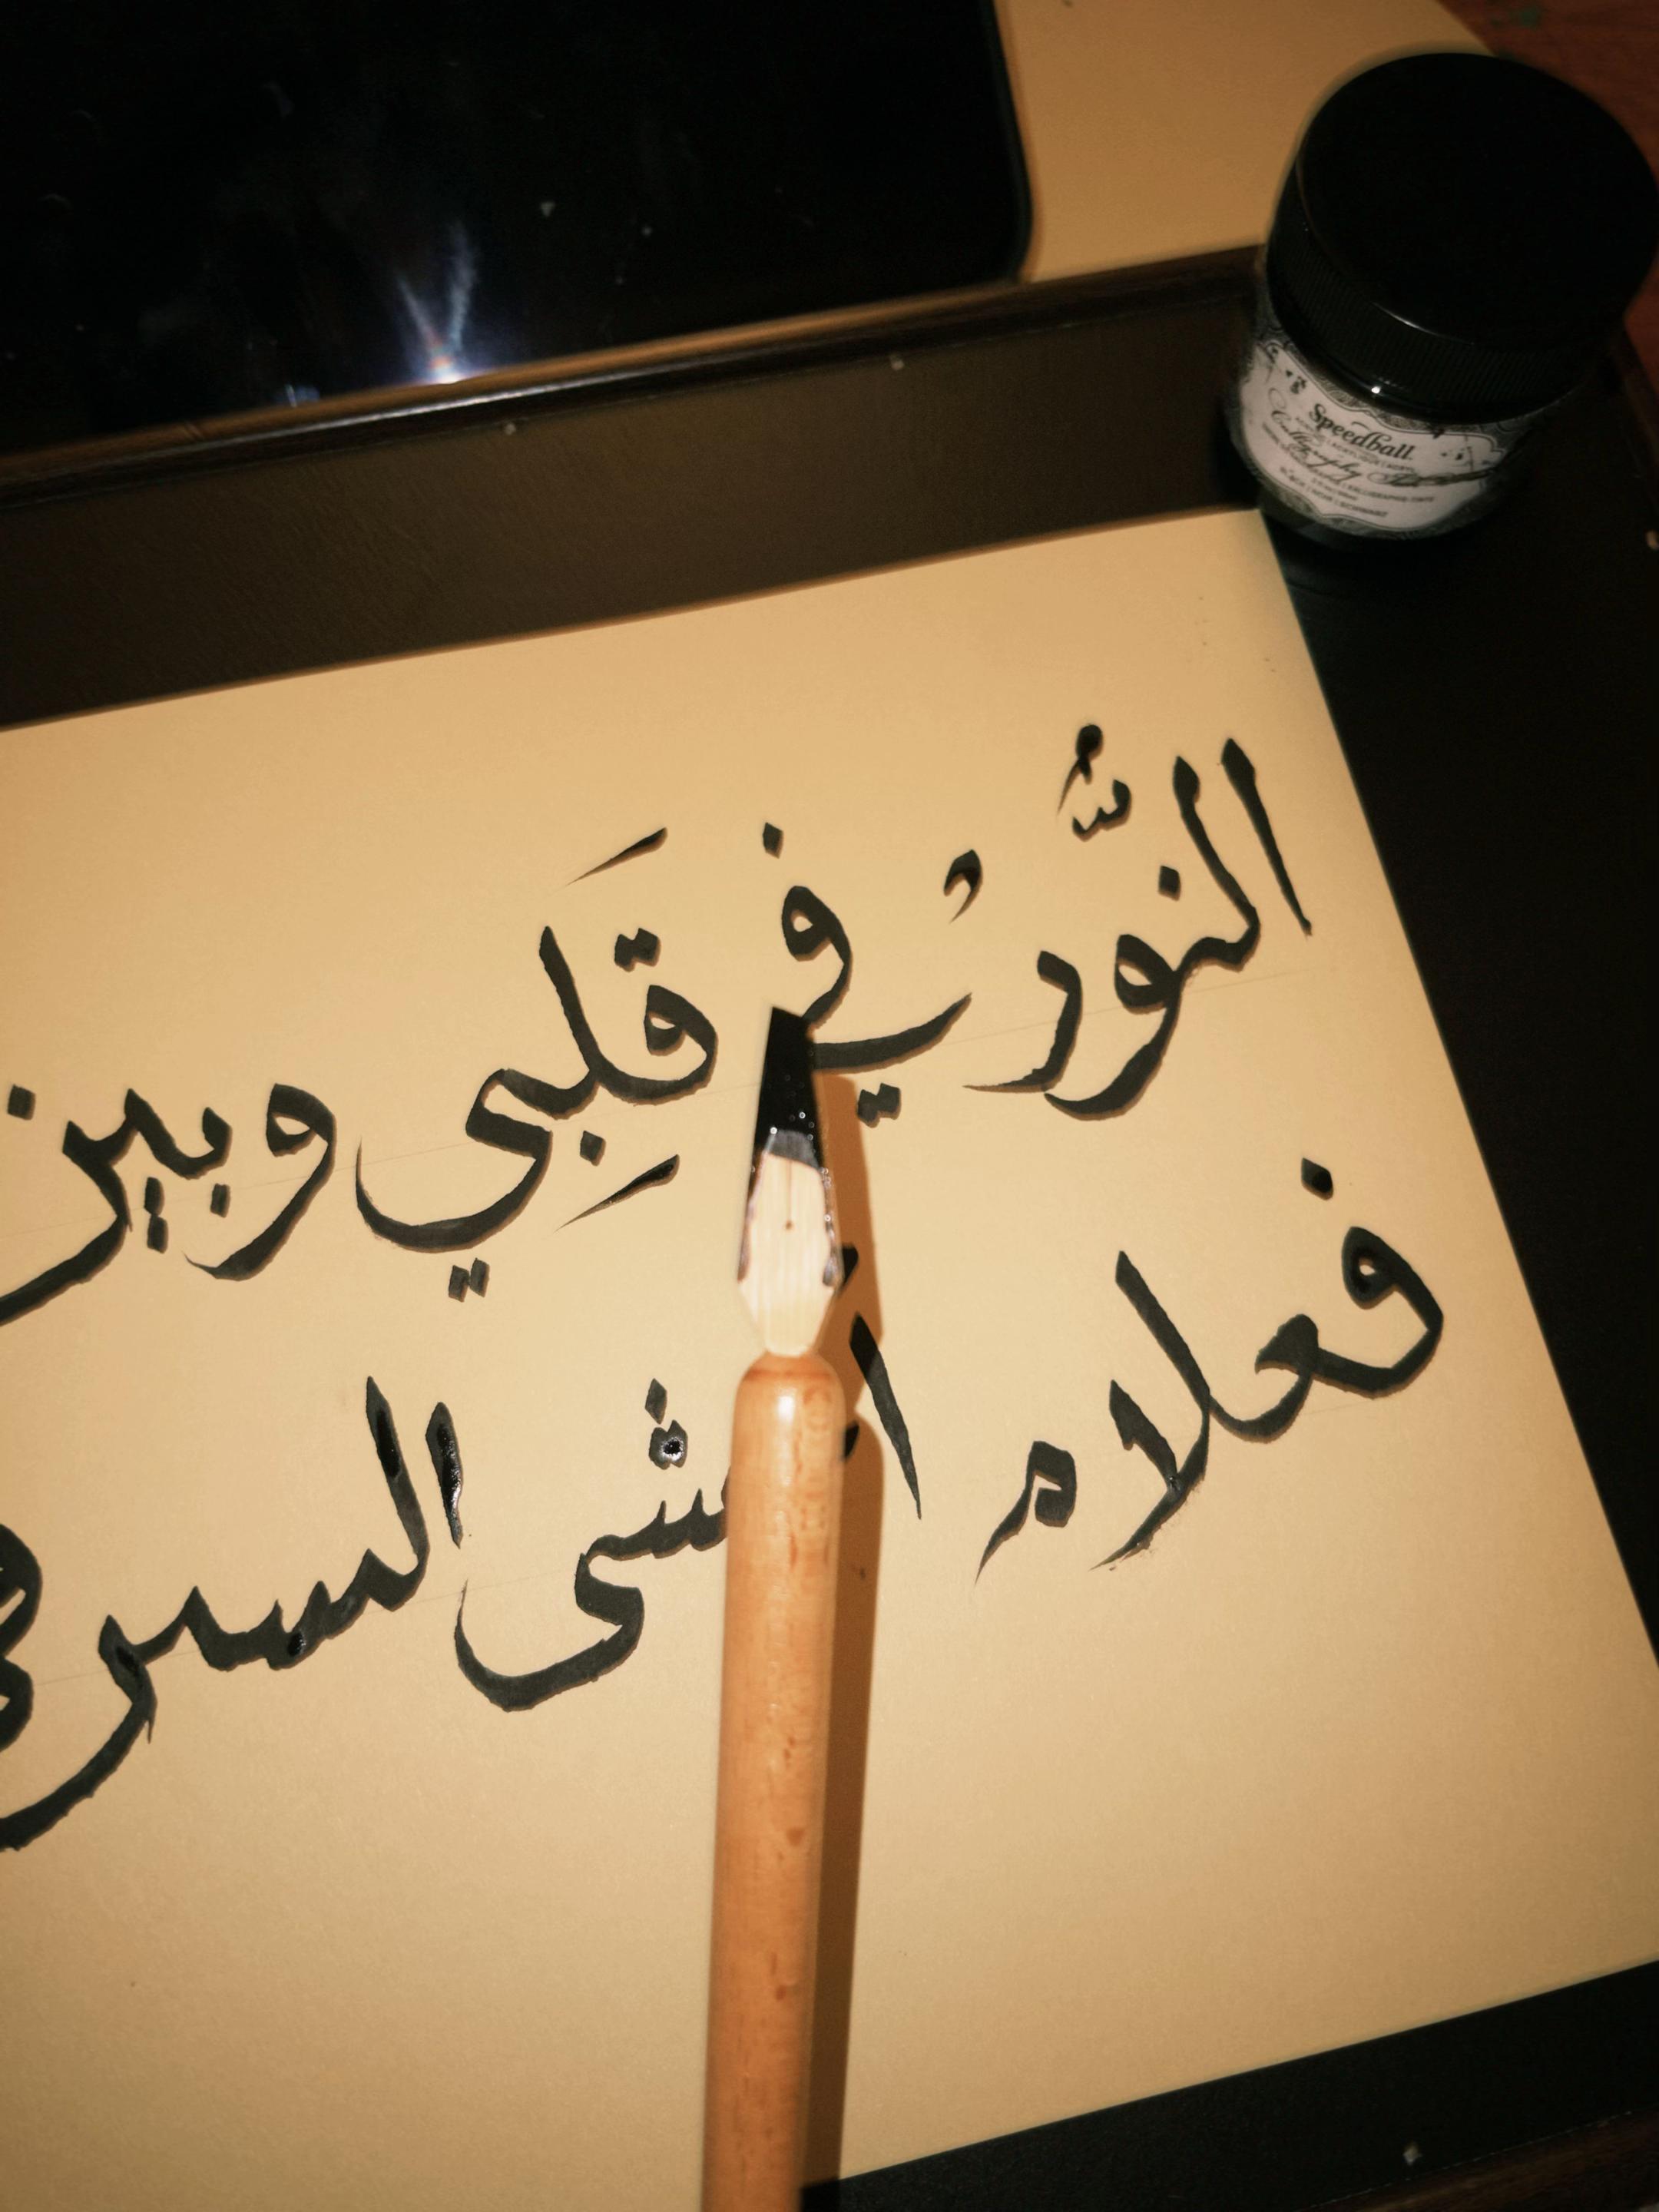 Speedball
Calligraphy Ink
النُّورُ في قَلبِي وبين
فعلام أخشى السير في